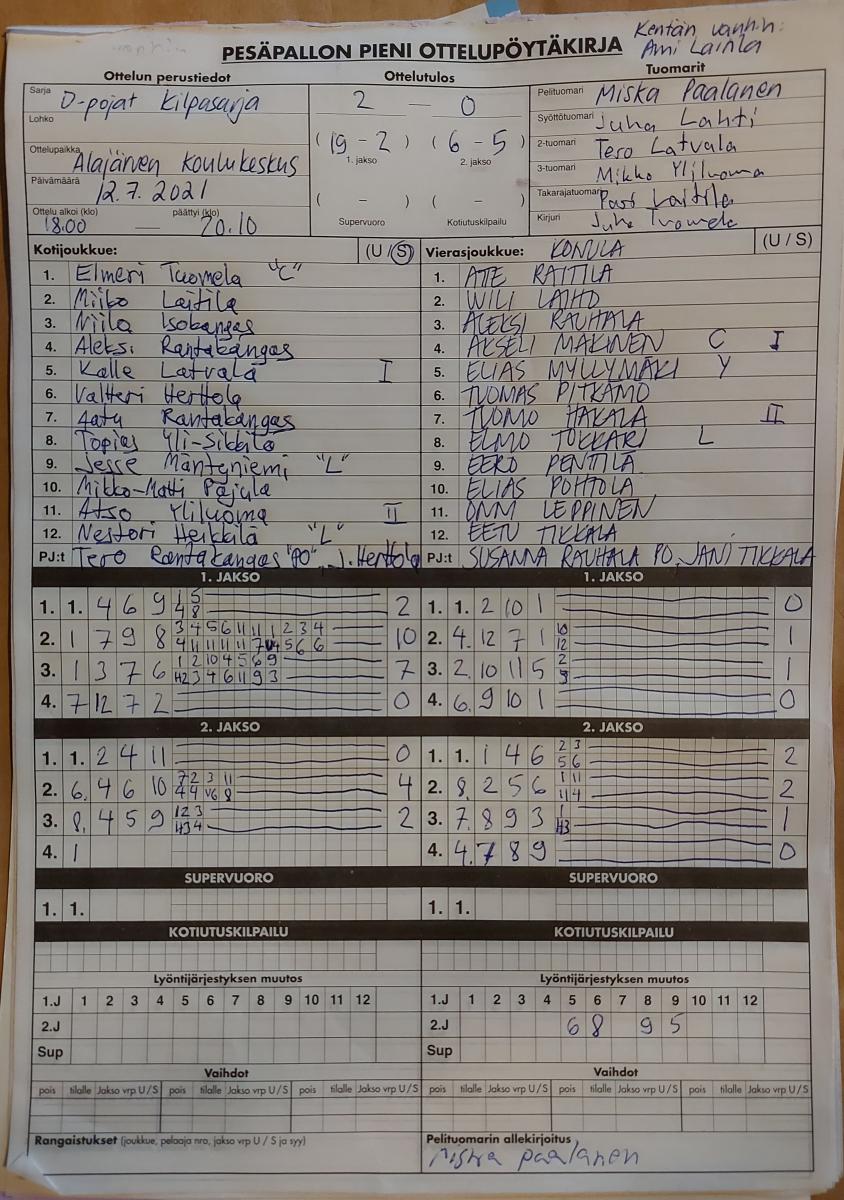 Kentän vanhin:
PESÄPALLON PIENI OTTELUPÖYTÄKIRJA
Ami Lainla
Ottelun perustiedot
Ottelutulos
Tuomarit
Sarja D-pojat kilpasarja
Lohko
Ottelupaikka Alajärven koulukeskus
Päivämäärä 12.7.2021
Ottelu alkoi (klo) päättyi (klo)
18.00 — 20.10
2 — 0
( 19 - 2 ) ( 6 - 5 )
1. jakso 2. jakso
( - ) ( - )
Supervuoro Kotiutuskilpailu
Pelituomari Miska Paalanen
Syöttötuomari Juha Lahti
2-tuomari Tero Latvala
3-tuomari Mikko Yliluoma
Takarajatuomari Pasi Laitila
Kirjuri Juha Tuomela
Kotijoukkue: (U / S)
1. Elmeri Tuomela "C"
2. Miiko Laitila
3. Niila Isokangas
4. Aleksi Rantakangas
5. Kalle Latvala I
6. Valtteri Herttola
7. Aatu Rantakangas
8. Topias Yli-Sikkilä
9. Jesse Mäntyniemi "L"
10. Mikko-Matti Pajula
11. Atso Yliluoma II
12. Nestori Heikkilä "L"
PJ:t Tero Rantakangas "PO", J. Herttola
Vierasjoukkue: KONULA (U / S)
1. ATTE RAITILA
2. WILI LAIHO
3. ALEKSI RAUHALA
4. AKSELI MÄKINEN C I
5. ELIAS MYLLYMÄKI Y
6. TUOMAS PITKÄMÖ
7. TUOMO HAKALA II
8. ELMO TOKKARI L
9. EERO PENTTILÄ
10. ELIAS POHTOLA
11. ONNI LEPPINEN
12. EETU TIKKALA
PJ:t SUSANNA RAUHALA PO, JANI TIKKALA
1. JAKSO
1. 1. 4 6 9 1 5 2
4 8
2. 1 7 9 8 3 4 5 6 11 11 1 2 3 4 10
3. 1 3 7 6 1 2 10 4 5 6 9 7
H2 3 4 6 11 9 3
4. 7 12 7 2 0
1. JAKSO
1. 1. 2 10 1 0
2. 4. 12 7 1 10 1
12
3. 2. 10 11 5 2 1
4. 6. 9 10 1 0
2. JAKSO
1. 1. 2 4 11 0
2. 6. 4 6 10 4
3. 8. 4 5 9 1 2 3 2
H3 4
4. 1
2. JAKSO
1. 1. 1 4 6 2 3 2
5 6
2. 8. 2 5 6 1 11 2
11 4
3. 7. 8 9 3 1 1
H3
4. 4. 7 8 9 0
SUPERVUORO
1. 1.
SUPERVUORO
1. 1.
KOTIUTUSKILPAILU
KOTIUTUSKILPAILU
Lyöntijärjestyksen muutos
1.J 1 2 3 4 5 6 7 8 9 10 11 12
2.J
Sup
Lyöntijärjestyksen muutos
1.J 1 2 3 4 5 6 7 8 9 10 11 12
2.J 6 8 9 5
Sup
Vaihdot
pois tilalle Jakso vrp U / S pois tilalle Jakso vrp U / S pois tilalle Jakso vrp U / S
Vaihdot
pois tilalle Jakso vrp U / S pois tilalle Jakso vrp U / S pois tilalle Jakso vrp U / S
Rangaistukset (joukkue, pelaaja nro, jakso vrp U / S ja syy)
Pelituomarin allekirjoitus
Miska Paalanen